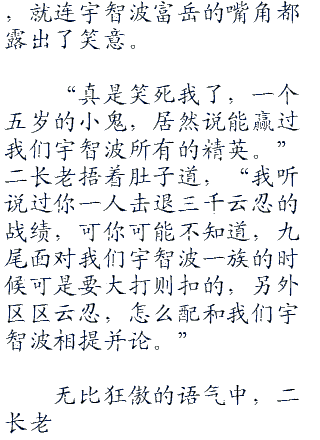 ，就连宇智波富岳的嘴角都
露出了笑意。
“真是笑死我了，一个
五岁的小鬼，居然说能赢过
我们宇智波所有的精英。”
二长老捂着肚子道，“我听
说过你一人击退三千云忍的
战绩，可你可能不知道，九
尾面对我们宇智波一族的时
候可是要大打则扣的，另外
区区云忍，怎么配和我们宇
智波相提并论。”
无比狂傲的语气中，二
长老